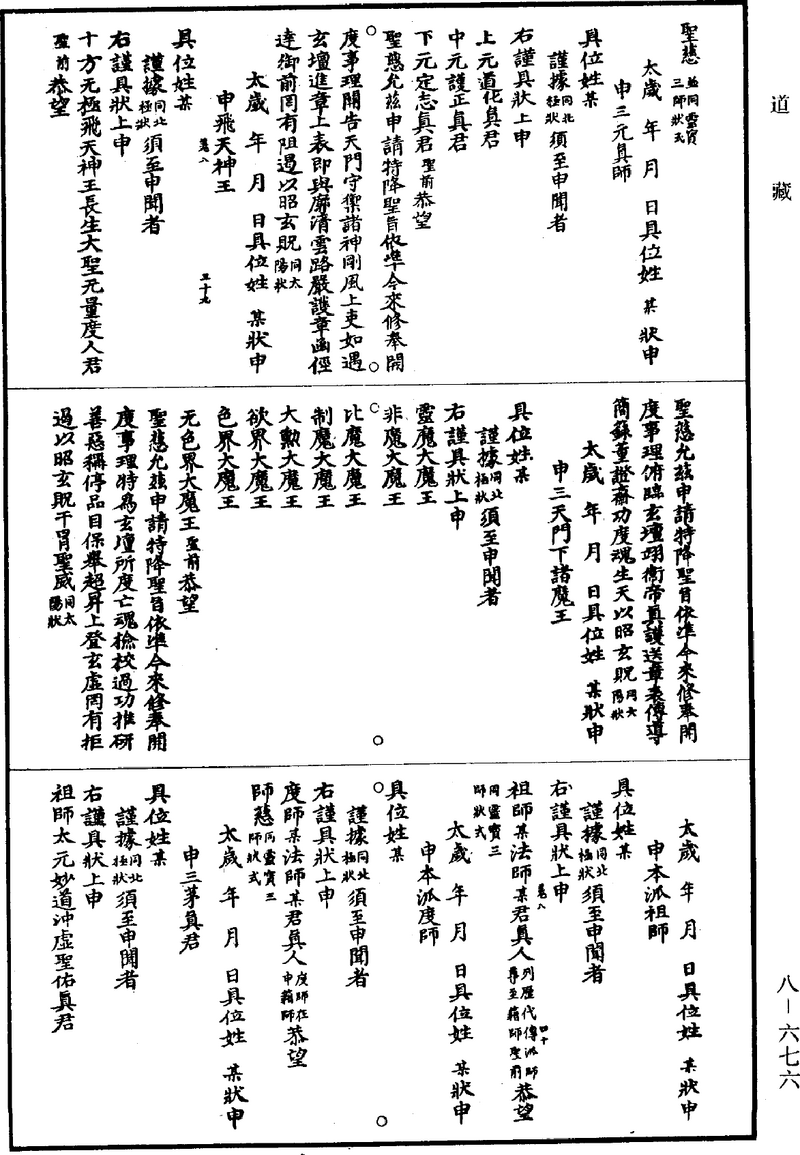 道藏
聖慈並同靈寶三師狀式
太歲　年　月　日具位姓　某　狀申
申三元真師
具位姓某
謹據同北極狀須至申聞者
右謹具狀上申
上元道化真君
中元護正真君
下元定志真君聖前恭望
聖慈允茲申請特降聖旨依準今來修奉開
度事理開告天門守禦諸神剛風上吏如遇
玄壇進章上表即與廓清雲路嚴護章函徑
達御前罔有阻遏以昭玄貺同太陽狀
太歲　年　月　日具位姓　某狀申
申飛天神王
卷八　三十九
具位姓某
謹據同北極狀須至申聞者
右謹具狀上申
十方无極飛天神王長生大聖无量度人君
聖前恭望
聖慈允茲申請特降聖旨依準今來修奉開
度事理俯臨玄壇翊衛帝真護送章表傳導
簡錄董證齋功度魂生天以昭玄貺同太陽狀
太歲　年　月　日具位姓　某狀申
申三天門下諸魔王
具位姓某
謹據同北極狀須至申聞者
右謹具狀上申
靈魔大魔王
非魔大魔王
比魔大魔王
制魔大魔王
大勳大魔王
欲界大魔王
色界大魔王
无色界大魔王聖前恭望
聖慈允茲申請特降聖旨依準今來修奉開
度事理特為玄壇所度亡魂撿校過功推研
善惡稱停品目保舉超昇上登玄虛罔有拒
過以昭玄貺干冐聖威同太陽狀
太歲　年　月　日具位姓　某狀申
申本派祖師
具位姓某
謹據同北極狀須至申聞者
右謹具狀上申
卷八　四十
祖師某法師某君真人列歷代傳派師尊至籍師聖前恭望
同靈寶三師狀式
太歲　年　月　日具位姓　某狀申
申本派度師
具位姓某
謹據同北極狀須至申聞者
右謹具狀上申
度師某法師某君真人度師在申籍師恭望
師慈同靈寶三師狀式
太歲　年　月　日具位姓　某狀申
申三茅真君
具位姓某
謹據同北極狀須至申聞者
右謹具狀上申
祖師太元妙道沖虛聖佑真君
八－六七六